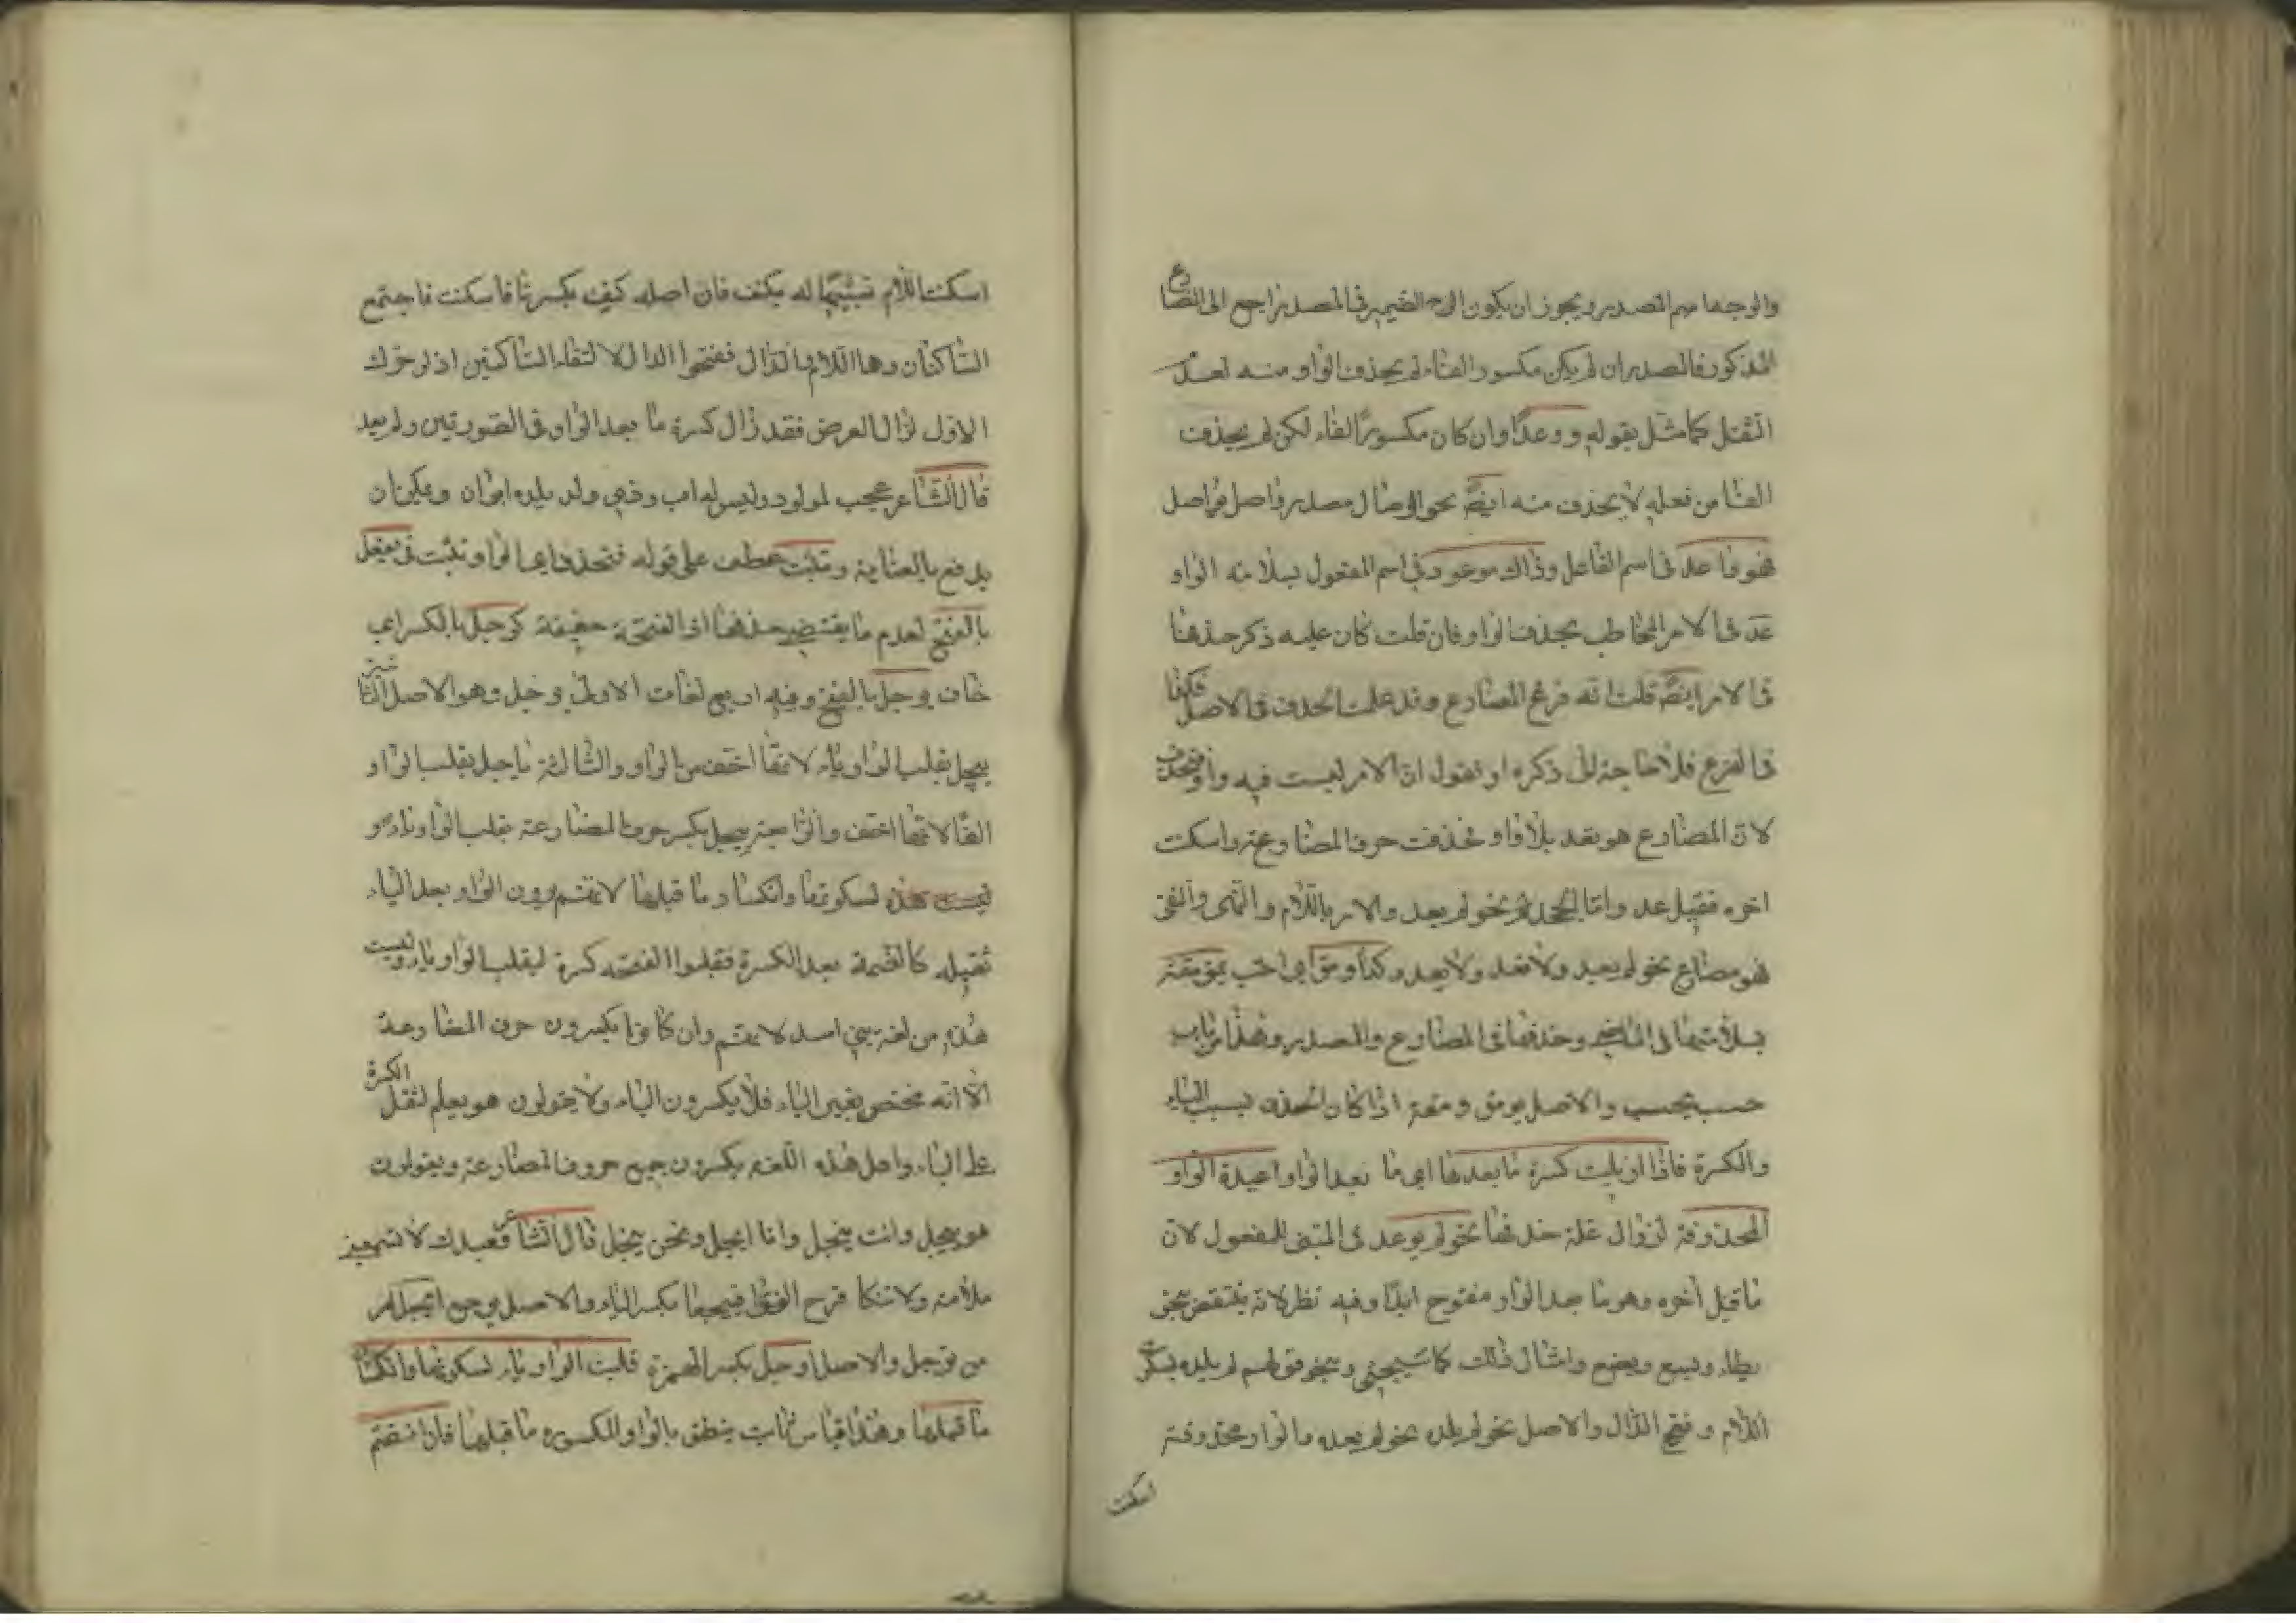 والوجه ما مهم المصدر ويجوز ان يكون الضمير في المصدر راجع الى المضارع
المذكور فالمصدر ان لم يكن مكسور الفاء لم يحذف الواو منه لعدم
الثقل كما مثل بقوله ووعدًا وان كان مكسور الفاء لكن لم يحذف
الفا من فعله لا يحذف منه ايضًا نحو الوصال مصدر واصل يواصل
فهو واعد في اسم الفاعل وذاك موعود في اسم المفعول بسلامة الواو
عد في الامر المخاطب بحذف الواو فان قلت كان عليه ذكر حذفها
في الامر ايضًا قلت انه فرع المضارع وقد علمت الحذف في الاصل فكذا
في الفرع فلا حاجة الى ذكره او نقول ان الامر ليست فيه واو فتحذف
لان المضارع هو تعد بلا واو فحذفت حرف المضارعة واسكنت
اخره فقيل عد واما الجحد نحو لم يعد والامر باللام والنهي والنفي
فهو مضارع نحو لم يعد ولا تعد ولا يعد وكذا ومق اي احب يمق مقة
بسلامتها في الماضي وحذفها في المضارع والمصدر وهذا من باب
حسب يحسب والاصل يومق ومقة اذا كان الحذف بسبب الياء
والكسرة فاذا ازيلت كسرة ما بعدها اي ما بعد الواو اعيدة الواو
المحذوفة لزوال علة حذفها نحو لم يوعد في المبنى للمفعول لان
ما قبل آخره وهو ما بعد الواو مفتوح ابدًا وفيه نظر لانه ينتقض بنحو
يطاء ويسع ويضع وامثال ذلك كما سيجيئ وبنحو قولهم لم يلده بسكون
اللام وفتح الدال والاصل نحو لم يلده نحو لم يعده والواو محذوفة
اسكنت
اسكنت اللام تشبيهًا له بكتف فان اصله كتف بكسر تا فاسكنت فاجتمع
الساكنان وهما اللام والدال ففتحوا الدال لالتقاء الساكنين اذ لو حرك
الاول لزال الغرض فقد زال كسرة ما بعد الواو في الصورتين ولم يعد
قال الشاعر عجبت لمولود وليس له اب وذي ولد لم يلده ابوان ويمكن ان
يدفع بالعناية وتثبت عطف على قوله فتحذف اي الواو تثبت في يفعل
بالفتح لعدم ما يقتضي حذفها اذ الفتحة خفيفة كوجل بالكسر اي
خاف يوجل بالفتح وفيه اربع لغات الاولى يوجل وهو الاصل الثانية
ييجل بقلب الواو ياء لانها اخف من الواو والثالثة ياجل بقلب الواو
الفًا لانها اخف والرابعة ييجل بكسر حرف المضارعة بقلب الواو ياء
ليست هذه لسكونها وانكسار ما قبلها لانهم يرون الواو بعد الياء
ثقيلة كالضمة بعد الكسرة فقلبوا الفتحة كسرة ليقلب الواو ياء وليست
هذه من لغة بني اسد لانهم وان كانوا يكسرون حرف المضارعة
الا انه مختص بغير الياء فلا يكسرون الياء ولا يقولون هو يعلم لثقل الكسرة
على الياء واهل هذه اللغة يكسرون جميع حروف المضارعة ويقولون
هو ييجل وانت تيجل وانا ايجل ونحن نيجل قال الشاعر قعيدك لا تسمعيني
ملامة ولا تنكا قرح الفؤاد فييجعا بكسر الياء والاصل يوجع ايجل امر
من توجل والاصل اوجل بكسر الهمزة قلبت الواو ياء لسكونها وانكسار
ما قبلها وهذا قياس ثابت ينطق بالواو المكسورة ما قبلها فان انضم